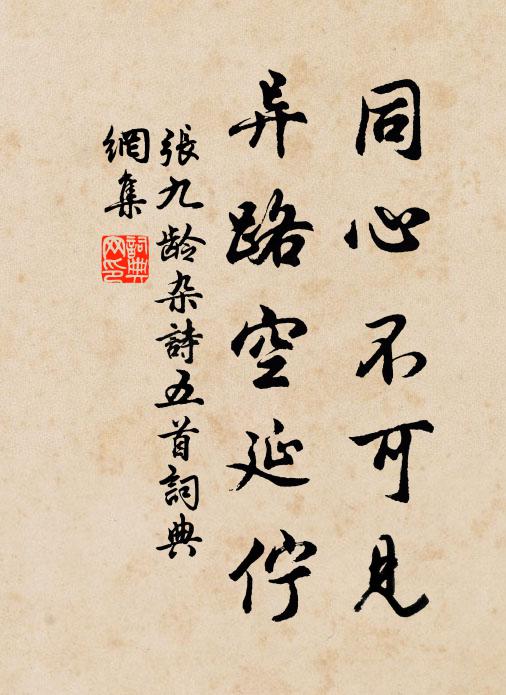 同心不可见
异路空延伫
張九龄杂詩五首詞典
網集
詞典
网印